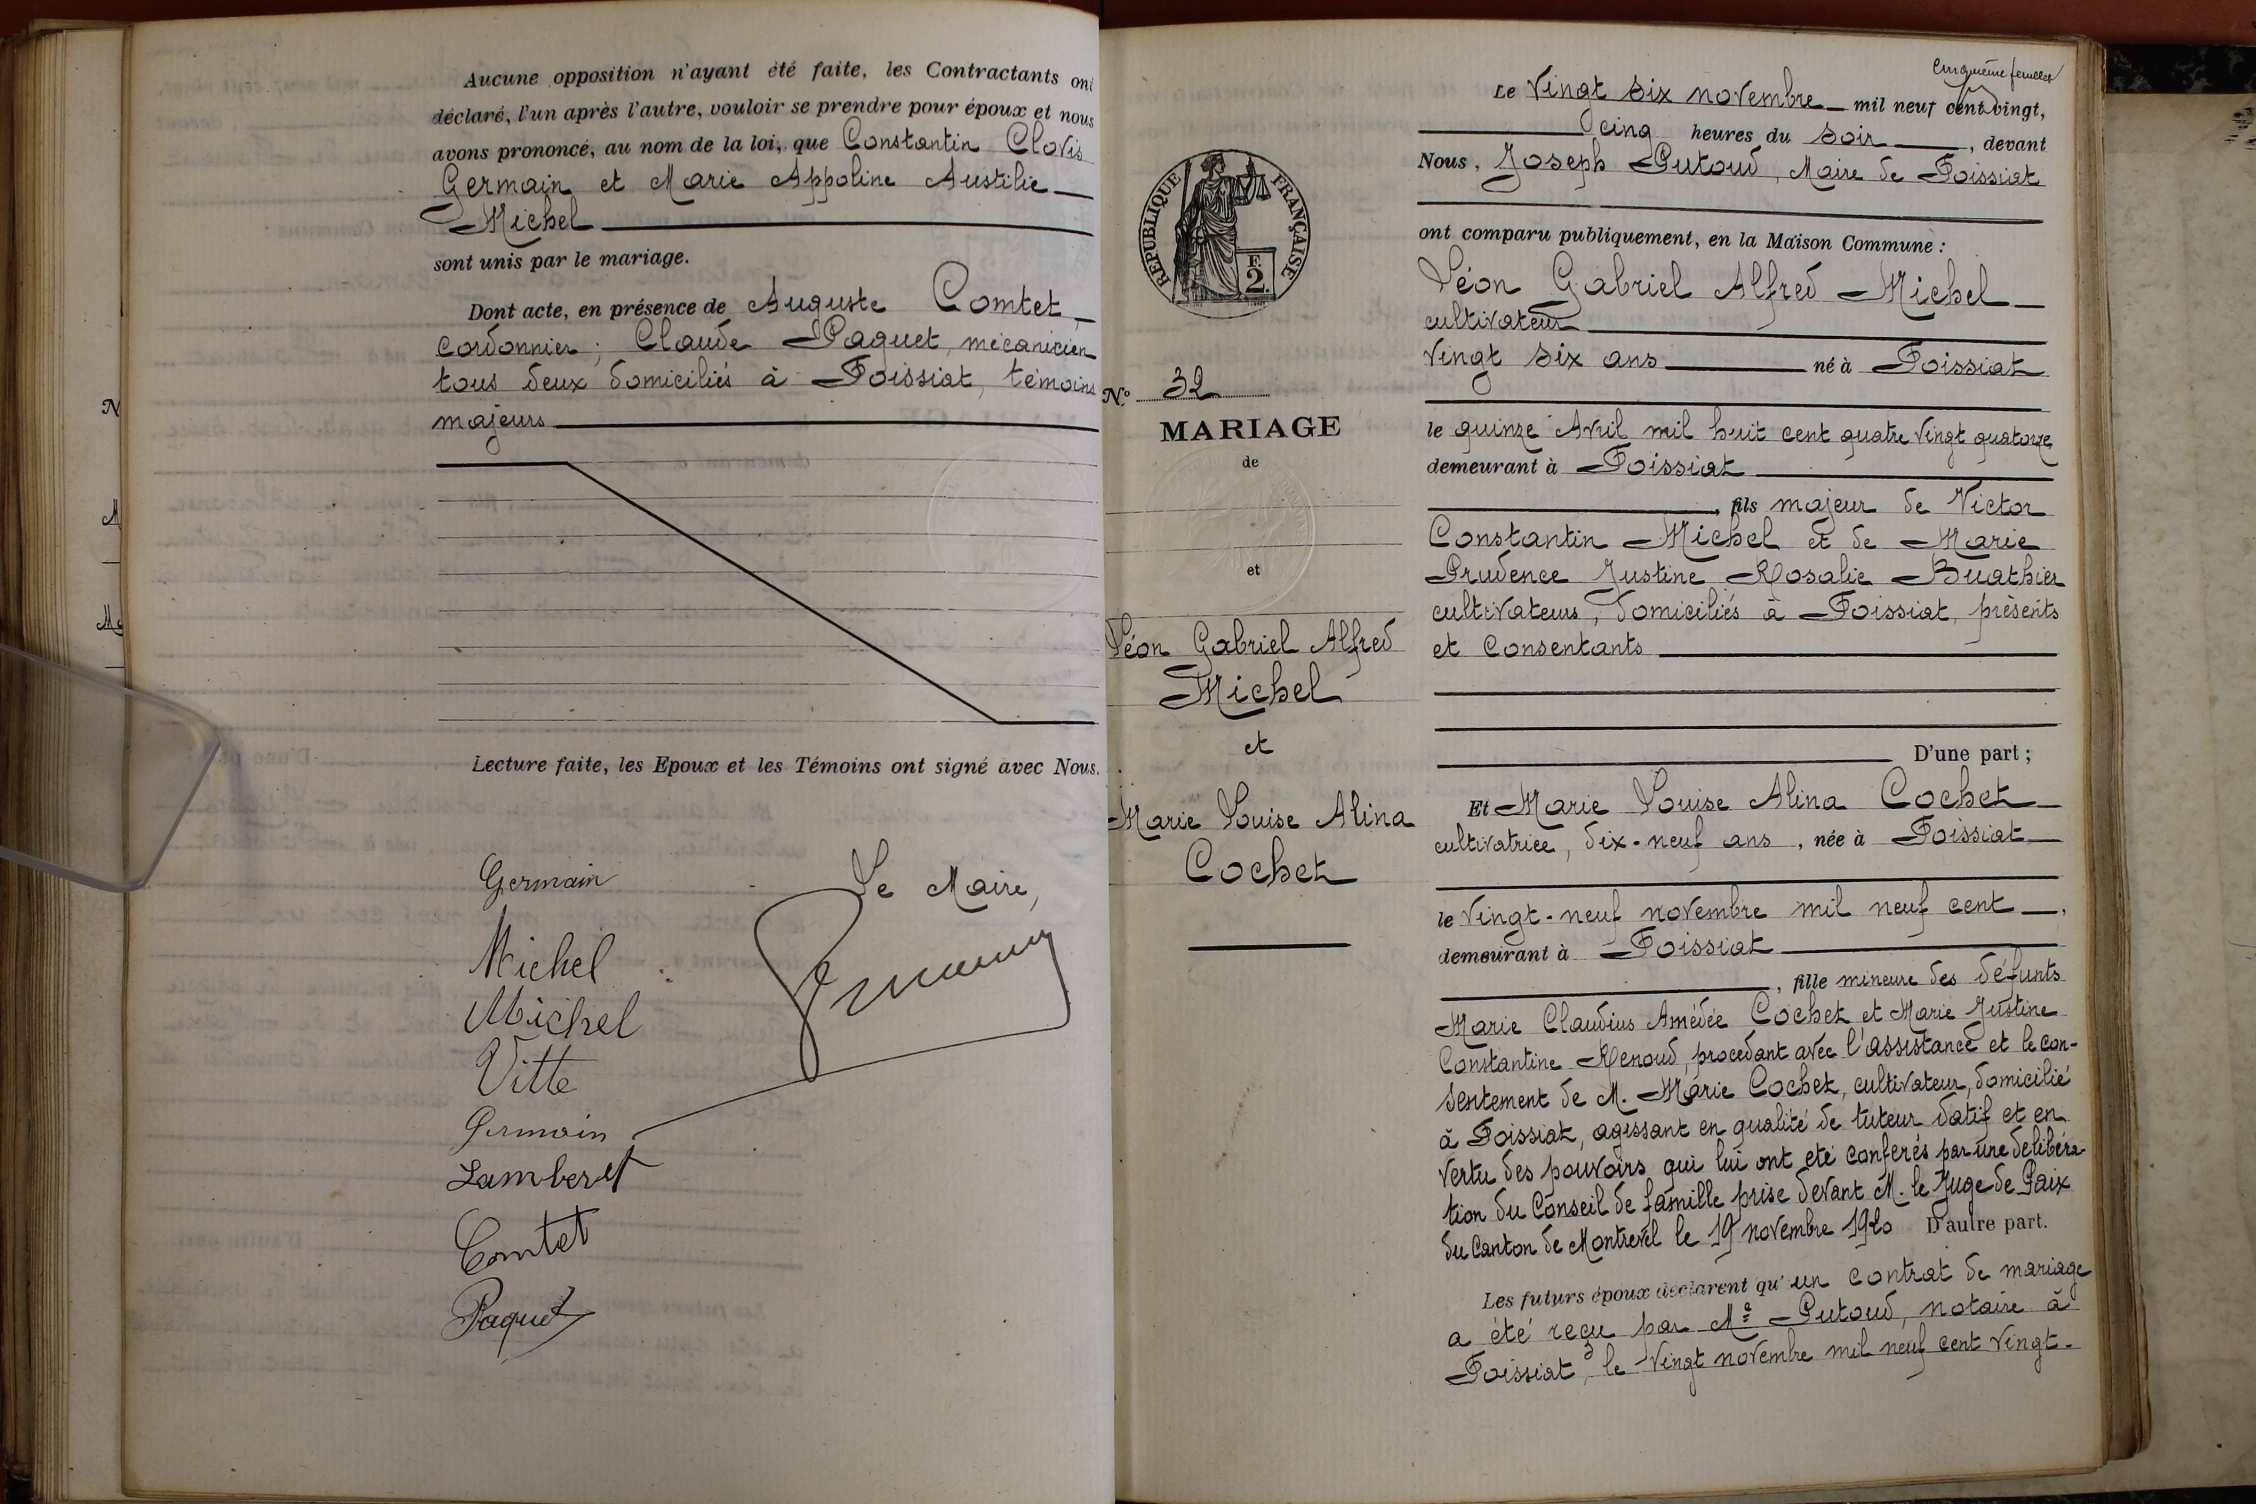 Aucune opposition n'ayant été faite, les Contractants ont
déclaré, l'un après l'autre, vouloir se prendre pour époux et nous
avons prononcé, au nom de la loi, que Constantin Clovis
Germain et Marie Appoline Austilie
Michel
sont unis par le mariage.
Dont acte, en présence de Auguste Comtet,
cordonnier; Claude Paquet, mécanicien
tous deux domiciliés à Foissiat, témoins
majeurs
Lecture faite, les Epoux et les Témoins ont signé avec Nous.
Le Maire,
Germain
Michel
Michel
Vitte
Germain
Lamberet
Comtet
Paquet
RÉPUBLIQUE FRANÇAISE
F.
2.
N.° 32
MARIAGE
de
et
Léon Gabriel Alfred
Michel
et
Marie Louise Alina
Cochet
Cinquième feuillet
Le Vingt six novembre mil neuf cent vingt,
cinq heures du soir, devant
Nous, Joseph Putoud, Maire de Foissiat
ont comparu publiquement, en la Maison Commune :
Léon Gabriel Alfred Michel
cultivateur
vingt six ans né à Foissiat
le quinze Avril mil huit cent quatre vingt quatorze
demeurant à Foissiat
, fils majeur de Victor
Constantin Michel et de Marie
Prudence Justine Rosalie Buathier
cultivateurs, domiciliés à Foissiat, présents
et consentants
D'une part ;
Et Marie Louise Alina Cochet
cultivatrice, dix-neuf ans, née à Foissiat
le vingt-neuf novembre mil neuf cent,
demeurant à Foissiat
, fille mineure des défunts
Marie Claudius Amédée Cochet et Marie Justine
Constantine Renoud, procédant avec l'assistance et le con-
sentement de M. Marie Cochet, cultivateur, domicilié
à Foissiat, agissant en qualité de tuteur datif et en
vertu des pouvoirs qui lui ont été conférés par une délibéra-
tion du Conseil de famille prise devant M. le Juge de Paix
du Canton de Montrevel le 19 novembre 1920 D'autre part.
Les futurs époux déclarent qu'un contrat de mariage
a été reçu par Me Putoud, notaire à
Foissiat, le vingt novembre mil neuf cent vingt.